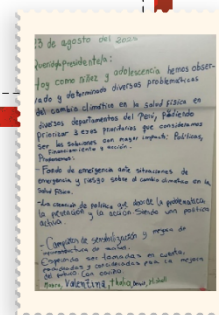 3 de agosto del 2025
Querid@ president@:
Hoy como niñez y adolescencia hemos obser-
vado y determinado diversas problematicas
del cambio climático en la salud física en
diversos departamentos del Perú, pudiendo
priorizar 3 ejes prioritarios que consideramos
ser las soluciones con mayor impacto: Políticas,
Financiamiento y acción.
Propuestas:
- Fondo de emergencia ante situaciones de
emergencia y riesgo sobre el cambio climático en la
salud física.
- La creación de política que aborde la problemática
la prevención y la acción siendo una política
activa.
- Campañas de sensibilización y mejora de
infraestructura de salud.
Esperando ser tomadas en cuenta,
escuchadas y consideradas para la mejora
del futuro. Con cariño.
Valentina, thalia,